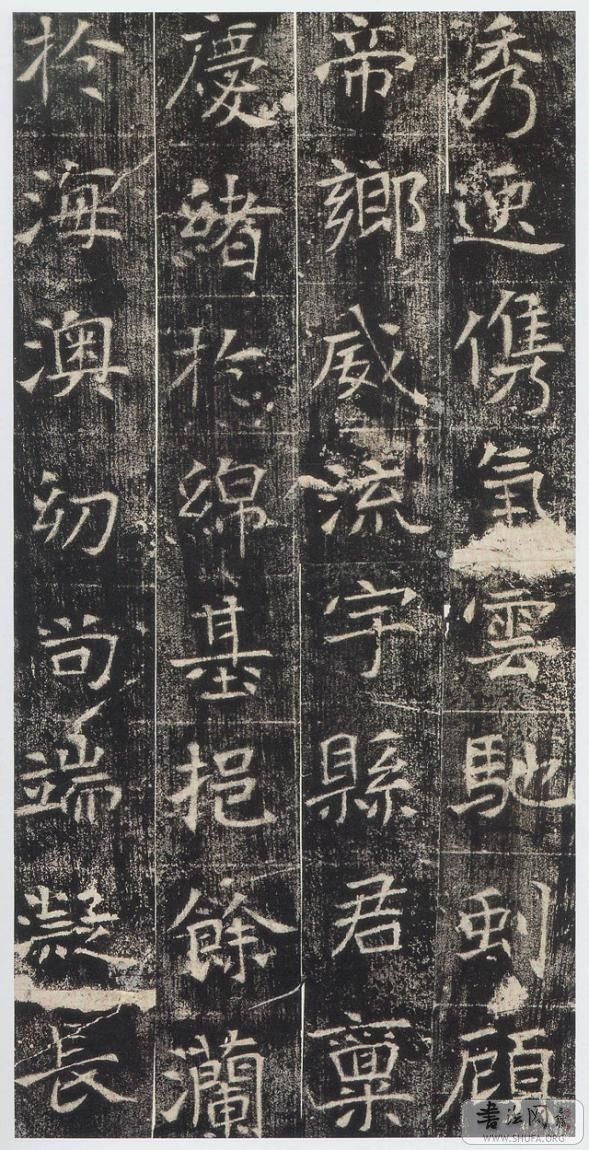 秀逈儁氣雲馳剄顧
帝鄉威流宇縣君稟
慶緒於綿基挹餘瀾
於海澳幼尚端凝長
書法网
WWW.SHUFA.ORG